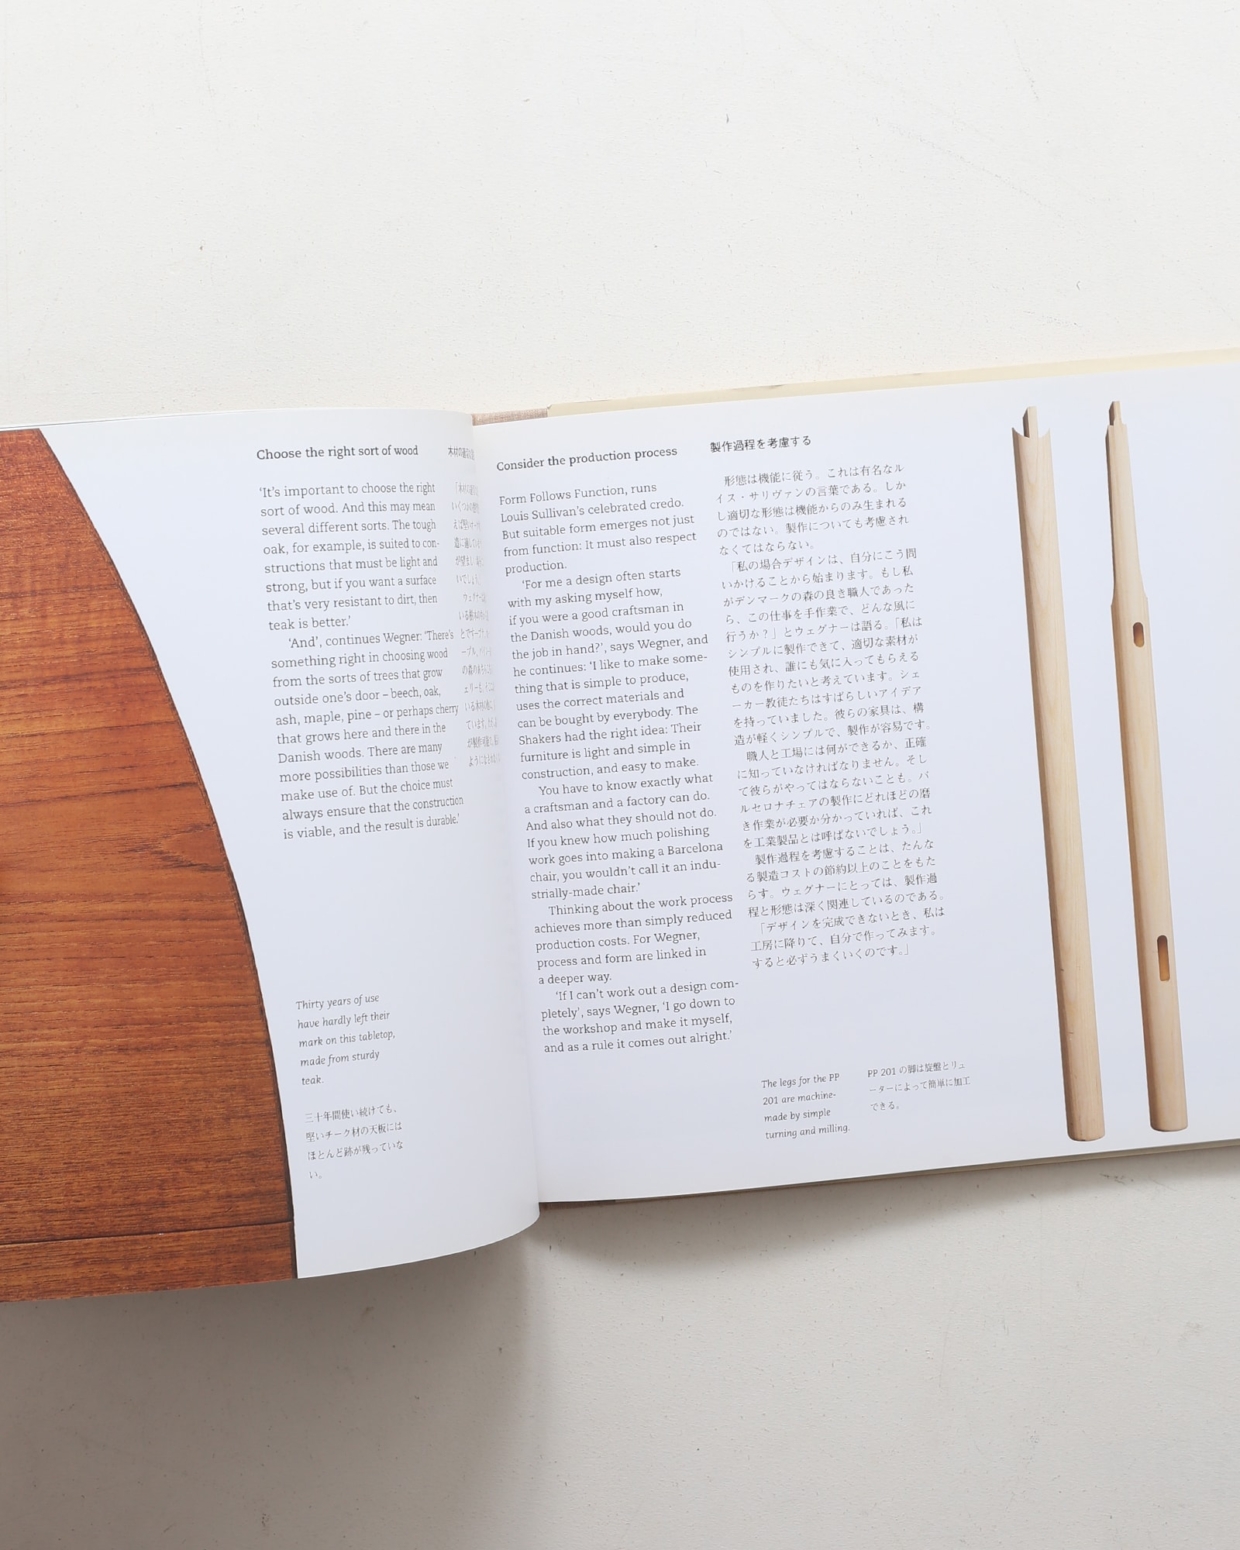 Choose the right sort of wood
'It's important to choose the right
sort of wood. And this may mean
several different sorts. The tough
oak, for example, is suited to con-
structions that must be light and
strong, but if you want a surface
that's very resistant to dirt, then
teak is better.'
'And', continues Wegner: 'There's
something right in choosing wood
from the sorts of trees that grow
outside one's door – beech, oak,
ash, maple, pine – or perhaps cherry
that grows here and there in the
Danish woods. There are many
more possibilities than those we
make use of. But the choice must
always ensure that the construction
is viable, and the result is durable.'
Thirty years of use
have hardly left their
mark on this tabletop,
made from sturdy
teak.
三十年間使い続けても、
堅いチーク材の天板には
ほとんど跡が残っていな
い。
Consider the production process
Form Follows Function, runs
Louis Sullivan's celebrated credo.
But suitable form emerges not just
from function: It must also respect
production.
'For me a design often starts
with my asking myself how,
if you were a good craftsman in
the Danish woods, would you do
the job in hand?', says Wegner, and
he continues: 'I like to make some-
thing that is simple to produce,
uses the correct materials and
can be bought by everybody. The
Shakers had the right idea: Their
furniture is light and simple in
construction, and easy to make.
You have to know exactly what
a craftsman and a factory can do.
And also what they should not do.
If you knew how much polishing
work goes into making a Barcelona
chair, you wouldn't call it an indu-
strially-made chair.'
Thinking about the work process
achieves more than simply reduced
production costs. For Wegner,
process and form are linked in
a deeper way.
'If I can't work out a design com-
pletely', says Wegner, 'I go down to
the workshop and make it myself,
and as a rule it comes out alright.'
製作過程を考慮する
形態は機能に従う。これは有名なル
イス・サリヴァンの言葉である。しか
し適切な形態は機能からのみ生まれる
のではない。製作についても考慮され
なくてはならない。
「私の場合デザインは、自分にこう問
いかけることから始まります。もし私
がデンマークの森の良き職人であった
ら、この仕事を手作業で、どんな風に
行うか？」とウェグナーは語る。「私は
シンプルに製作できて、適切な素材が
使用され、誰にも気に入ってもらえる
ものを作りたいと考えています。シェ
ーカー教徒たちはすばらしいアイデア
を持っていました。彼らの家具は、構
造が軽くシンプルで、製作が容易です。
職人と工場には何ができるか、正確
に知っていなければなりません。そし
て彼らがやってはならないことも。バ
ルセロナチェアの製作にどれほどの磨
き作業が必要か分かっていれば、これ
を工業製品とは呼ばないでしょう。」
製作過程を考慮することは、たんな
る製造コストの節約以上のことをもた
らす。ウェグナーにとっては、製作過
程と形態は深く関連しているのである。
「デザインを完成できないとき、私は
工房に降りて、自分で作ってみます。
すると必ずうまくいくのです。」
The legs for the PP
201 are machine-
made by simple
turning and milling.
PP 201 の脚は旋盤とリュ
ーターによって簡単に加工
できる。